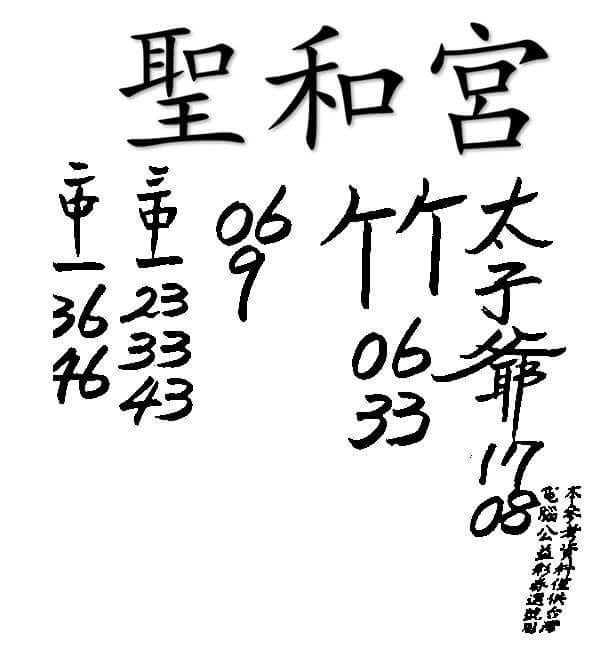 聖和宮
太子爺
17
08
本参考資料僅供台灣
電腦公益彩券選號用
竹
06
33
06
9
三中一
23
33
43
二中一
36
46